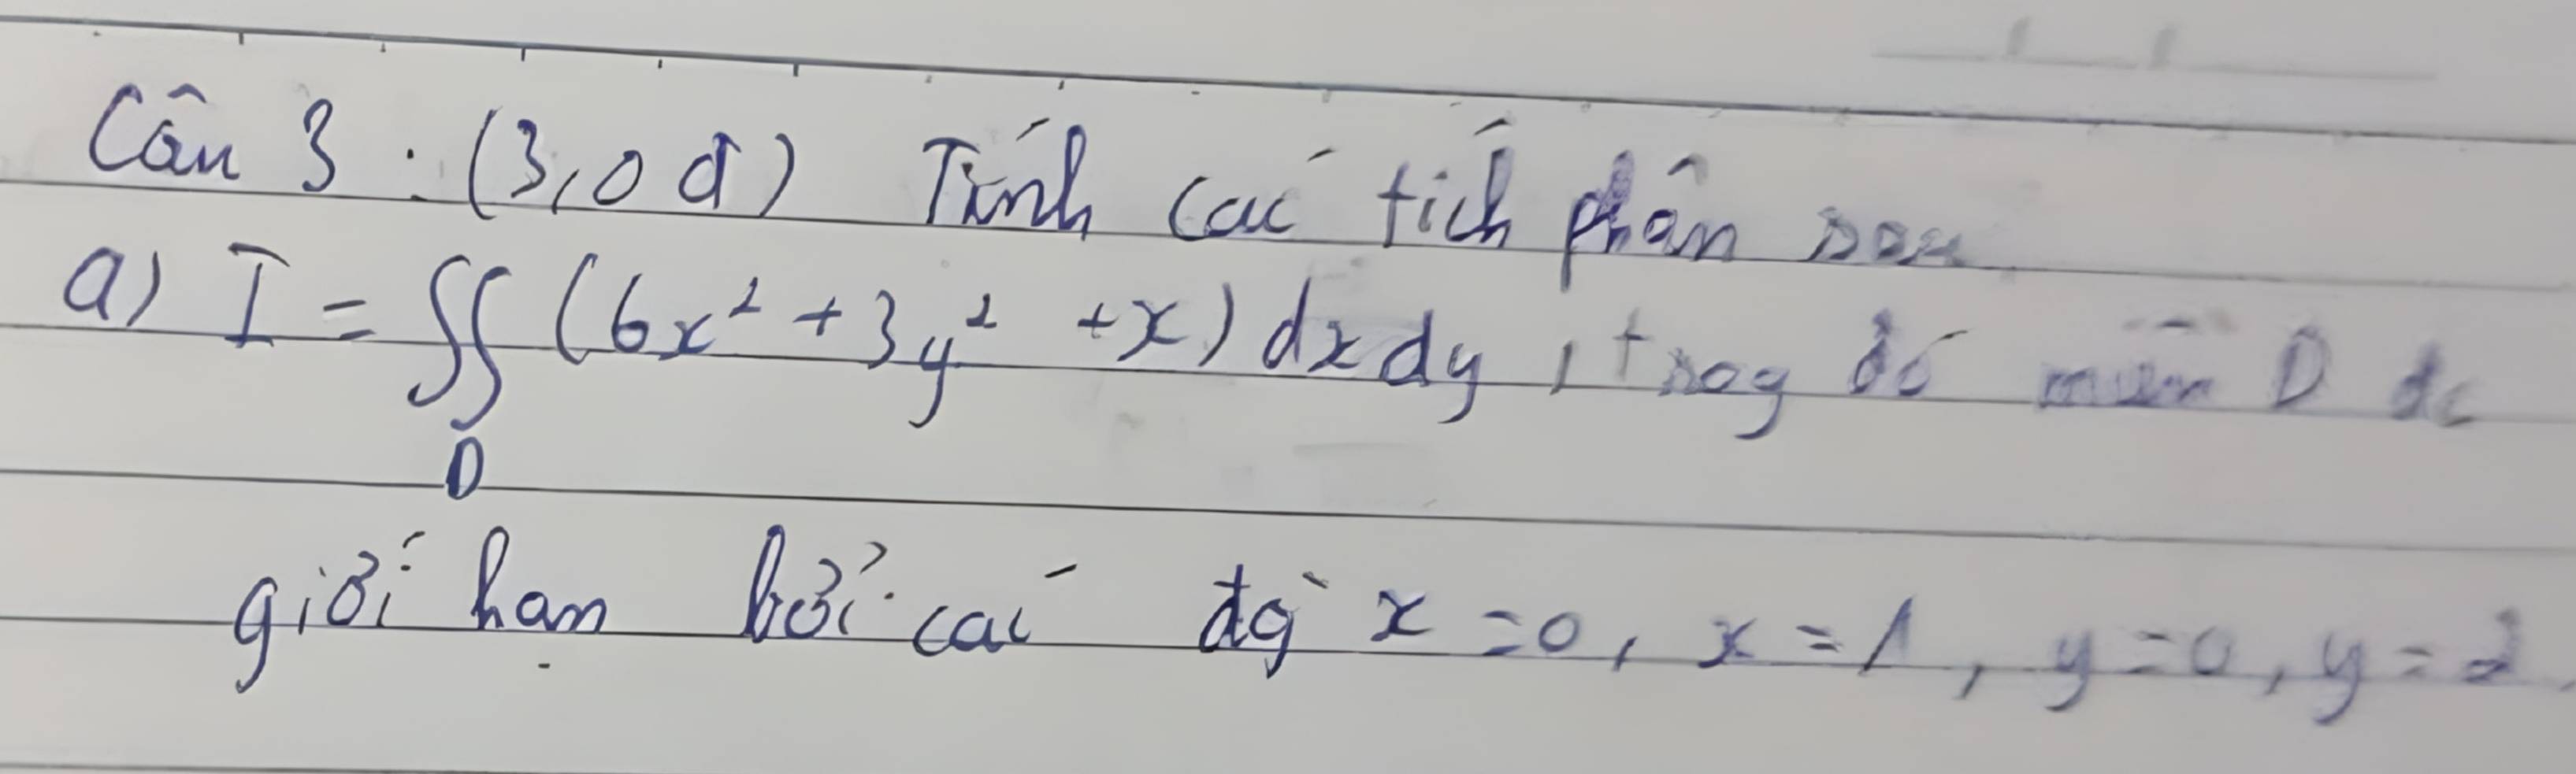 Câu 3 : (3,0 đ) Tính các tích phân sau
a) I = ∬ (6x² + 3y² + x) dxdy, trog đó miền D đc
D
giới hạn bởi các đg x = 0, x = 1, y = 0, y = 2.